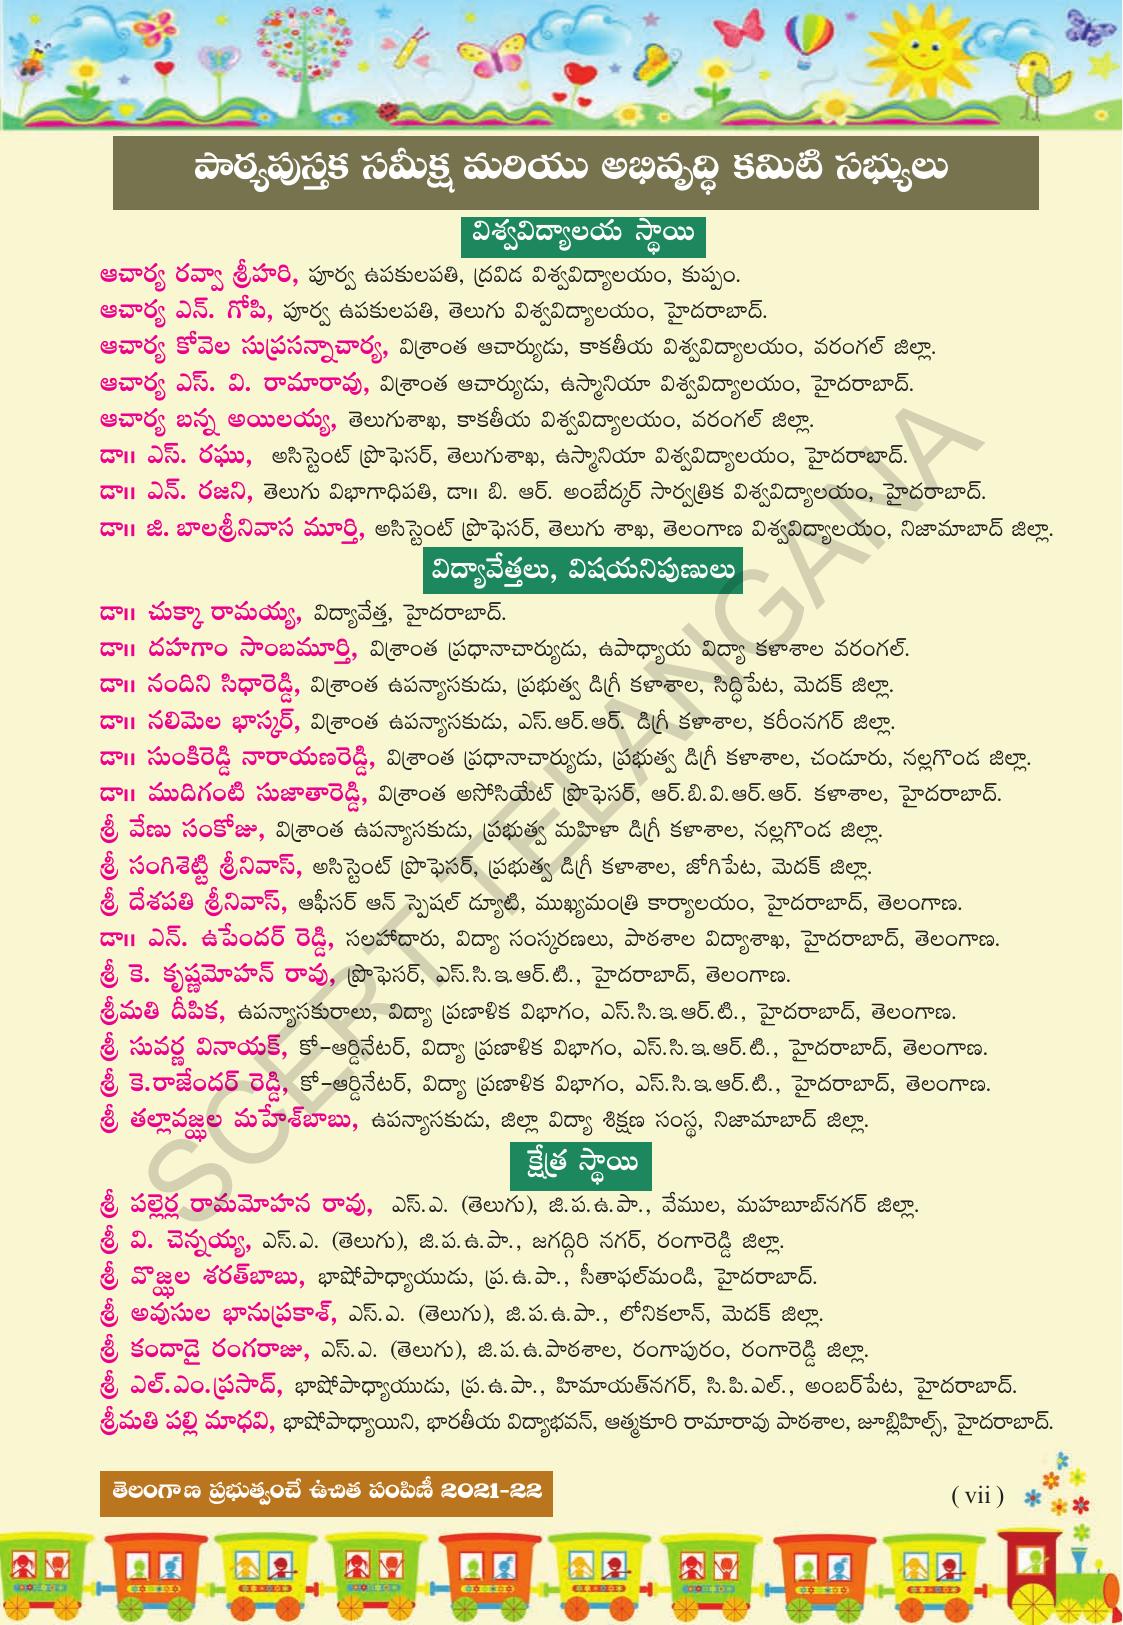 పాఠ్యపుస్తక సమీక్ష మరియు అభివృద్ధి కమిటి సభ్యులు
విశ్వవిద్యాలయ స్థాయి
ఆచార్య రవ్వా శ్రీహరి, పూర్వ ఉపకులపతి, ద్రవిడ విశ్వవిద్యాలయం, కుప్పం.
ఆచార్య ఎన్. గోపి, పూర్వ ఉపకులపతి, తెలుగు విశ్వవిద్యాలయం, హైదరాబాద్.
ఆచార్య కోవెల సుప్రసన్నాచార్య, విశ్రాంత ఆచార్యుడు, కాకతీయ విశ్వవిద్యాలయం, వరంగల్ జిల్లా.
ఆచార్య ఎస్. వి. రామారావు, విశ్రాంత ఆచార్యుడు, ఉస్మానియా విశ్వవిద్యాలయం, హైదరాబాద్.
ఆచార్య బన్న అయిలయ్య, తెలుగుశాఖ, కాకతీయ విశ్వవిద్యాలయం, వరంగల్ జిల్లా.
డా॥ ఎస్. రఘు, అసిస్టెంట్ ప్రొఫెసర్, తెలుగుశాఖ, ఉస్మానియా విశ్వవిద్యాలయం, హైదరాబాద్.
డా॥ ఎన్. రజని, తెలుగు విభాగాధిపతి, డా॥ బి. ఆర్. అంబేద్కర్ సార్వత్రిక విశ్వవిద్యాలయం, హైదరాబాద్.
డా॥ జి. బాలశ్రీనివాస మూర్తి, అసిస్టెంట్ ప్రొఫెసర్, తెలుగు శాఖ, తెలంగాణ విశ్వవిద్యాలయం, నిజామాబాద్ జిల్లా.
విద్యావేత్తలు, విషయనిపుణులు
డా॥ చుక్కా రామయ్య, విద్యావేత్త, హైదరాబాద్.
డా॥ దహగాం సాంబమూర్తి, విశ్రాంత ప్రధానాచార్యుడు, ఉపాధ్యాయ విద్యా కళాశాల వరంగల్.
డా॥ నందిని సిధారెడ్డి, విశ్రాంత ఉపన్యాసకుడు, ప్రభుత్వ డిగ్రీ కళాశాల, సిద్ధిపేట, మెదక్ జిల్లా.
డా॥ నలిమెల భాస్కర్, విశ్రాంత ఉపన్యాసకుడు, ఎస్.ఆర్.ఆర్. డిగ్రీ కళాశాల, కరీంనగర్ జిల్లా.
డా॥ సుంకిరెడ్డి నారాయణరెడ్డి, విశ్రాంత ప్రధానాచార్యుడు, ప్రభుత్వ డిగ్రీ కళాశాల, చండూరు, నల్లగొండ జిల్లా.
డా॥ ముదిగంటి సుజాతారెడ్డి, విశ్రాంత అసోసియేట్ ప్రొఫెసర్, ఆర్.బి.వి.ఆర్.ఆర్. కళాశాల, హైదరాబాద్.
శ్రీ వేణు సంకోజు, విశ్రాంత ఉపన్యాసకుడు, ప్రభుత్వ మహిళా డిగ్రీ కళాశాల, నల్లగొండ జిల్లా.
శ్రీ సంగిశెట్టి శ్రీనివాస్, అసిస్టెంట్ ప్రొఫెసర్, ప్రభుత్వ డిగ్రీ కళాశాల, జోగిపేట, మెదక్ జిల్లా.
శ్రీ దేశపతి శ్రీనివాస్, ఆఫీసర్ ఆన్ స్పెషల్ డ్యూటి, ముఖ్యమంత్రి కార్యాలయం, హైదరాబాద్, తెలంగాణ.
డా॥ ఎన్. ఉపేందర్ రెడ్డి, సలహాదారు, విద్యా సంస్కరణలు, పాఠశాల విద్యాశాఖ, హైదరాబాద్, తెలంగాణ.
శ్రీ కె. కృష్ణమోహన్ రావు, ప్రొఫెసర్, ఎస్.సి.ఇ.ఆర్.టి., హైదరాబాద్, తెలంగాణ.
శ్రీమతి దీపిక, ఉపన్యాసకురాలు, విద్యా ప్రణాళిక విభాగం, ఎస్.సి.ఇ.ఆర్.టి., హైదరాబాద్, తెలంగాణ.
శ్రీ సువర్ణ వినాయక్, కో-ఆర్డినేటర్, విద్యా ప్రణాళిక విభాగం, ఎస్.సి.ఇ.ఆర్.టి., హైదరాబాద్, తెలంగాణ.
శ్రీ కె.రాజేందర్ రెడ్డి, కో-ఆర్డినేటర్, విద్యా ప్రణాళిక విభాగం, ఎస్.సి.ఇ.ఆర్.టి., హైదరాబాద్, తెలంగాణ.
శ్రీ తల్లావజ్ఝల మహేశ్‌బాబు, ఉపన్యాసకుడు, జిల్లా విద్యా శిక్షణ సంస్థ, నిజామాబాద్ జిల్లా.
SCERT TELANGANA
క్షేత్ర స్థాయి
శ్రీ పల్లెర్ల రామమోహన రావు, ఎస్.ఎ. (తెలుగు), జి.ప.ఉ.పా., వేముల, మహబూబ్‌నగర్ జిల్లా.
శ్రీ వి. చెన్నయ్య, ఎస్.ఎ. (తెలుగు), జి.ప.ఉ.పా., జగద్గిరి నగర్, రంగారెడ్డి జిల్లా.
శ్రీ వొజ్ఝల శరత్‌బాబు, భాషోపాధ్యాయుడు, ప్ర.ఉ.పా., సీతాఫల్‌మండి, హైదరాబాద్.
శ్రీ అవుసుల భానుప్రకాశ్, ఎస్.ఎ. (తెలుగు), జి.ప.ఉ.పా., లోనికలాన్, మెదక్ జిల్లా.
శ్రీ కందాడై రంగరాజు, ఎస్.ఎ. (తెలుగు), జి.ప.ఉ.పాఠశాల, రంగాపురం, రంగారెడ్డి జిల్లా.
శ్రీ ఎల్.ఎం.ప్రసాద్, భాషోపాధ్యాయుడు, ప్ర.ఉ.పా., హిమాయత్‌నగర్, సి.పి.ఎల్., అంబర్‌పేట, హైదరాబాద్.
శ్రీమతి పల్లి మాధవి, భాషోపాధ్యాయిని, భారతీయ విద్యాభవన్, ఆత్మకూరి రామారావు పాఠశాల, జూబ్లిహిల్స్, హైదరాబాద్.
తెలంగాణ ప్రభుత్వంచే ఉచిత పంపిణీ 2021-22
( vii )